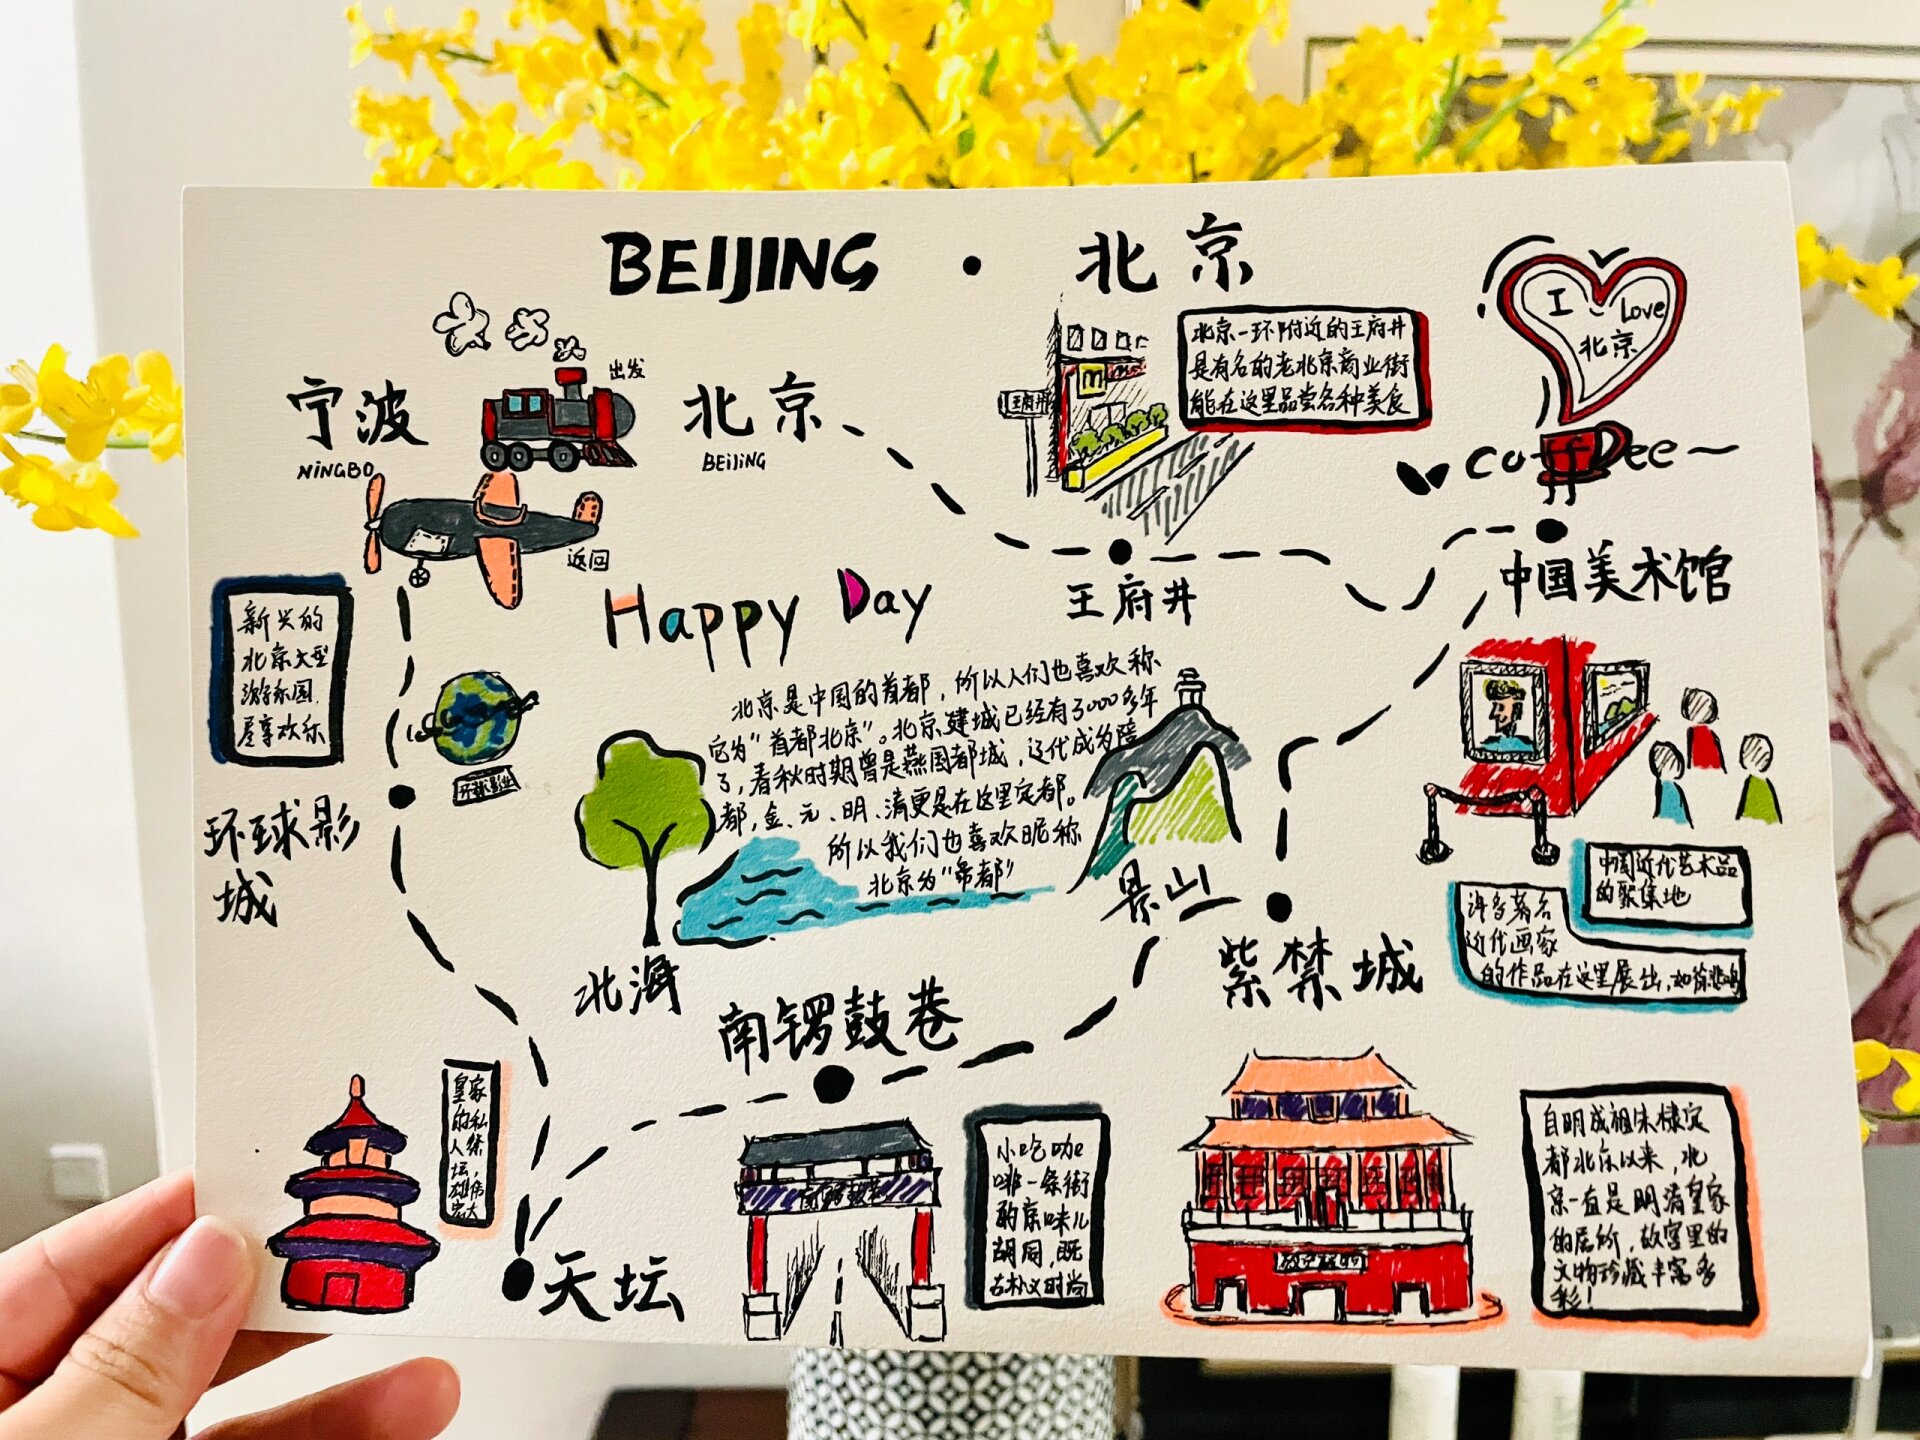 BEIJING · 北京
宁波
NINGBO
出发
北京
BEIJING
返回
王府井
北京一环附近的王府井
是有名的老北京商业街
能在这里品尝各种美食
I Love
北京
coffee
王府井
中国美术馆
Happy Day
北京是中国的首都，所以人们也喜欢称
它为“首都北京”。北京建城已经有3000多年
了，春秋时期曾是燕国都城，辽代成为陪
都，金、元、明、清更是在这里定都。
所以我们也喜欢昵称
北京为“帝都”
新兴的
北京大型
游乐园
尽享欢乐
环球影业
环球影
城
北海
景山
紫禁城
中国近代艺术品
的聚集地
许多著名
近代画家
的作品在这里展出，如徐悲鸿
南锣鼓巷
皇家
的私
人祭
坛，
雄伟
宏大
天坛
南锣鼓巷
小吃咖
啡一条街
的京味儿
胡同，既
古朴又时尚
故宫博物
自明成祖朱棣定
都北京以来，北
京一直是明清皇家
的居所，故宫里的
文物珍藏丰富多
彩！